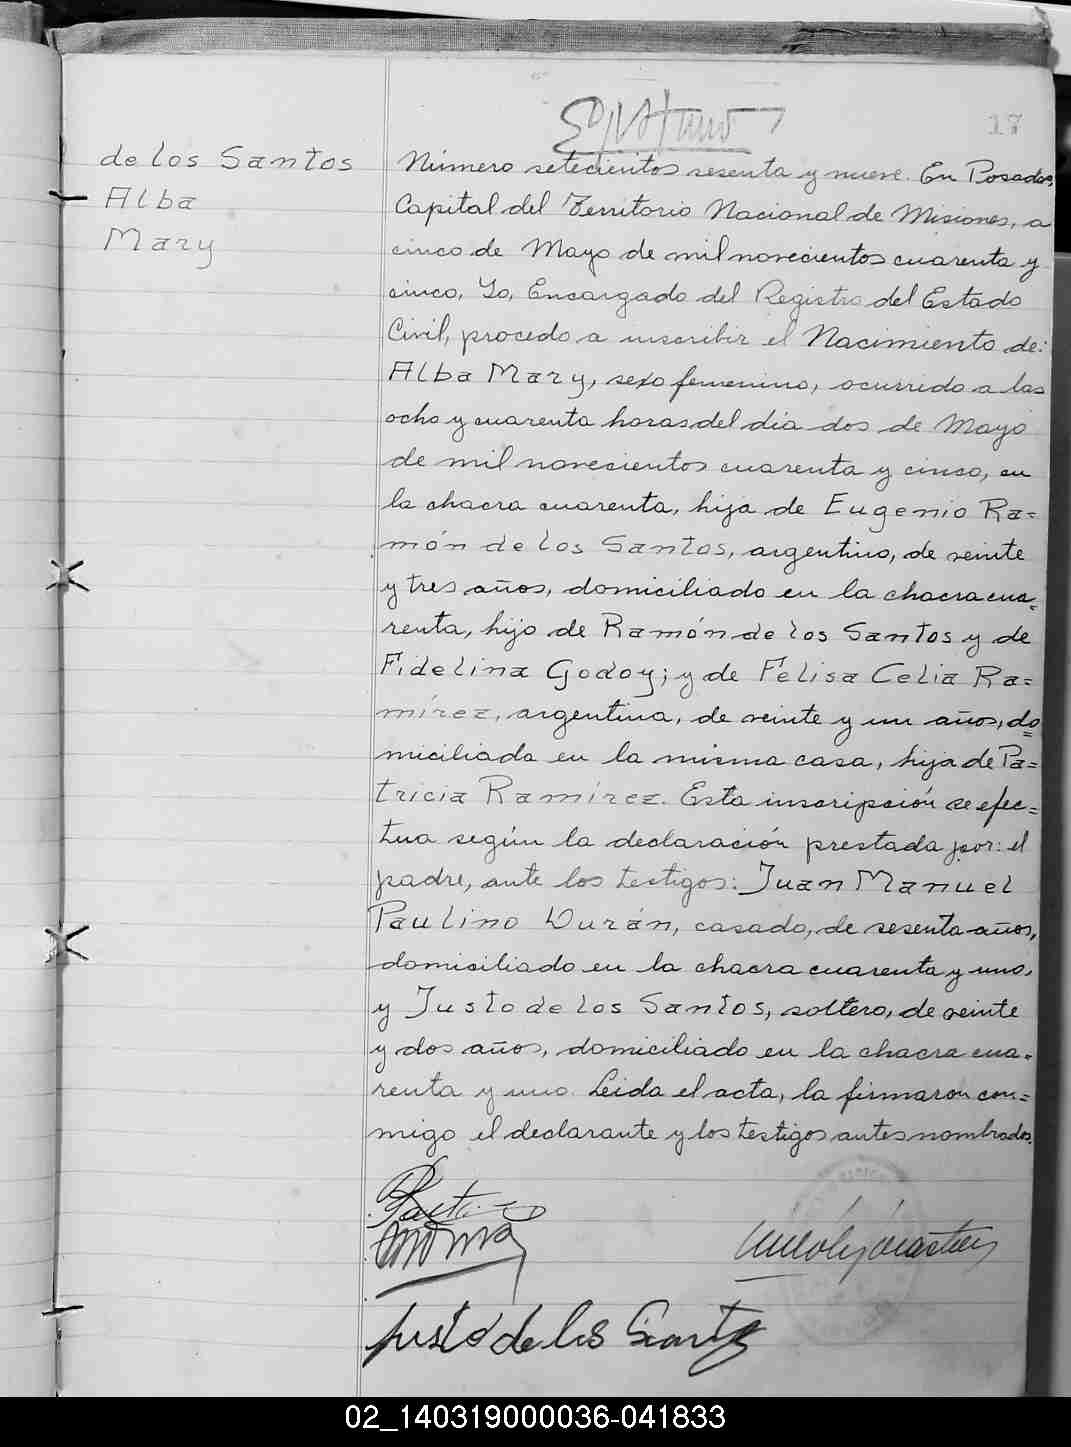 17
de los Santos
Alba
Mary
Número setecientos sesenta y nueve. En Posadas,
Capital del Territorio Nacional de Misiones, a
cinco de Mayo de mil novecientos cuarenta y
cinco, Yo, Encargado del Registro del Estado
Civil, procedo a inscribir el Nacimiento de:
Alba Mary, sexo femenino, ocurrido a las
ocho y cuarenta horas del día dos de Mayo
de mil novecientos cuarenta y cinco, en
la chacra cuarenta, hija de Eugenio Ra=
món de los Santos, argentino, de veinte
y tres años, domiciliado en la chacra cua=
renta, hijo de Ramón de los Santos y de
Fidelina Godoy; y de Felisa Celia Ra=
mírez, argentina, de veinte y un años, do
miciliada en la misma casa, hija de Pa=
tricia Ramírez. Esta inscripción se efec=
tua según la declaración prestada por: el
padre, ante los testigos: Juan Manuel
Paulino Durán, casado, de sesenta años,
domiciliado en la chacra cuarenta y uno,
y Justo de los Santos, soltero, de veinte
y dos años, domiciliado en la chacra cua=
renta y uno. Leida el acta, la firmaron con=
migo el declarante y los testigos antes nombrados.
Justo de los Santos
02_140319000036-041833